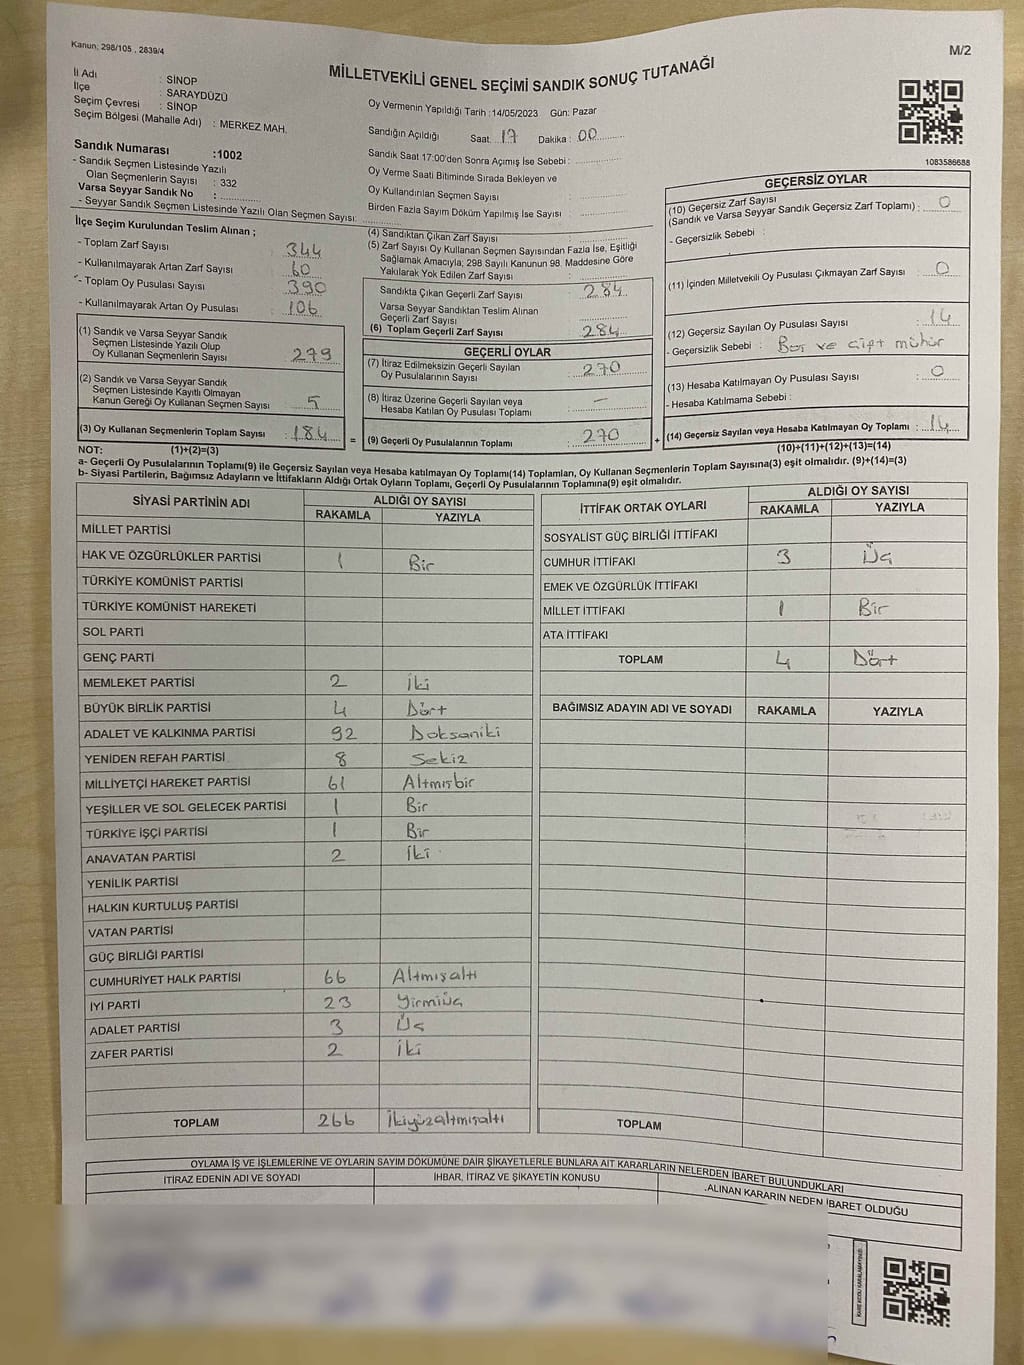 Kanun: 298/105 , 2839/4
M/2
MİLLETVEKİLİ GENEL SEÇİMİ SANDIK SONUÇ TUTANAĞI
İl Adı : SİNOP
İlçe : SARAYDÜZÜ
Seçim Çevresi : SİNOP
Seçim Bölgesi (Mahalle Adı) : MERKEZ MAH.
Sandık Numarası :1002
- Sandık Seçmen Listesinde Yazılı
Olan Seçmenlerin Sayısı : 332
Varsa Seyyar Sandık No :
- Seyyar Sandık Seçmen Listesinde Yazılı Olan Seçmen Sayısı:
Oy Vermenin Yapıldığı Tarih :14/05/2023 Gün: Pazar
Sandığın Açıldığı Saat: 17 Dakika : 00
Sandık Saat 17:00'den Sonra Açımış İse Sebebi :
Oy Verme Saati Bitiminde Sırada Bekleyen ve
Oy Kullandırılan Seçmen Sayısı
Birden Fazla Sayım Döküm Yapılmış İse Sayısı
1083586688
İlçe Seçim Kurulundan Teslim Alınan ;
- Toplam Zarf Sayısı : 344
- Kullanılmayarak Artan Zarf Sayısı : 60
- Toplam Oy Pusulası Sayısı : 390
- Kullanılmayarak Artan Oy Pusulası : 106
(1) Sandık ve Varsa Seyyar Sandık
Seçmen Listesinde Yazılı Olup
Oy Kullanan Seçmenlerin Sayısı : 279
(2) Sandık ve Varsa Seyyar Sandık
Seçmen Listesinde Kayıtlı Olmayan
Kanun Gereği Oy Kullanan Seçmen Sayısı : 5
(3) Oy Kullanan Seçmenlerin Toplam Sayısı : 184
(4) Sandıktan Çıkan Zarf Sayısı
(5) Zarf Sayısı Oy Kullanan Seçmen Sayısından Fazla İse, Eşitliği
Sağlamak Amacıyla; 298 Sayılı Kanunun 98. Maddesine Göre
Yakılarak Yok Edilen Zarf Sayısı :
Sandıkta Çıkan Geçerli Zarf Sayısı : 284
Varsa Seyyar Sandıktan Teslim Alınan
Geçerli Zarf Sayısı :
(6) Toplam Geçerli Zarf Sayısı : 284
GEÇERLİ OYLAR
(7) İtiraz Edilmeksizin Geçerli Sayılan
Oy Pusulalarının Sayısı : 270
(8) İtiraz Üzerine Geçerli Sayılan veya
Hesaba Katılan Oy Pusulası Toplamı : —
= (9) Geçerli Oy Pusulalarının Toplamı : 270
GEÇERSİZ OYLAR
(10) Geçersiz Zarf Sayısı
(Sandık ve Varsa Seyyar Sandık Geçersiz Zarf Toplamı) : 0
- Geçersizlik Sebebi :
(11) İçinden Milletvekili Oy Pusulası Çıkmayan Zarf Sayısı : 0
(12) Geçersiz Sayılan Oy Pusulası Sayısı : 14
- Geçersizlik Sebebi : Boş ve çift mühür
(13) Hesaba Katılmayan Oy Pusulası Sayısı : 0
- Hesaba Katılmama Sebebi :
+ (14) Geçersiz Sayılan veya Hesaba Katılmayan Oy Toplamı : 14
NOT: (1)+(2)=(3)
(10)+(11)+(12)+(13)=(14)
a- Geçerli Oy Pusulalarının Toplamı(9) ile Geçersiz Sayılan veya Hesaba katılmayan Oy Toplamı(14) Toplamları, Oy Kullanan Seçmenlerin Toplam Sayısına(3) eşit olmalıdır. (9)+(14)=(3)
b- Siyasi Partilerin, Bağımsız Adayların ve İttifakların Aldığı Ortak Oyların Toplamı, Geçerli Oy Pusulalarının Toplamına(9) eşit olmalıdır.
SİYASİ PARTİNİN ADI ALDIĞI OY SAYISI
RAKAMLA YAZIYLA
MİLLET PARTİSİ
HAK VE ÖZGÜRLÜKLER PARTİSİ 1 Bir
TÜRKİYE KOMÜNİST PARTİSİ
TÜRKİYE KOMÜNİST HAREKETİ
SOL PARTİ
GENÇ PARTİ
MEMLEKET PARTİSİ 2 İki
BÜYÜK BİRLİK PARTİSİ 4 Dört
ADALET VE KALKINMA PARTİSİ 92 Doksaniki
YENİDEN REFAH PARTİSİ 8 Sekiz
MİLLİYETÇİ HAREKET PARTİSİ 61 Altmışbir
YEŞİLLER VE SOL GELECEK PARTİSİ 1 Bir
TÜRKİYE İŞÇİ PARTİSİ 1 Bir
ANAVATAN PARTİSİ 2 İki
YENİLİK PARTİSİ
HALKIN KURTULUŞ PARTİSİ
VATAN PARTİSİ
GÜÇ BİRLİĞİ PARTİSİ
CUMHURİYET HALK PARTİSİ 66 Altmışaltı
İYİ PARTİ 23 Yirmiüç
ADALET PARTİSİ 3 Üç
ZAFER PARTİSİ 2 İki
TOPLAM 266 İkiyüzaltmışaltı
İTTİFAK ORTAK OYLARI ALDIĞI OY SAYISI
RAKAMLA YAZIYLA
SOSYALİST GÜÇ BİRLİĞİ İTTİFAKI
CUMHUR İTTİFAKI 3 Üç
EMEK VE ÖZGÜRLÜK İTTİFAKI
MİLLET İTTİFAKI 1 Bir
ATA İTTİFAKI
TOPLAM 4 Dört
BAĞIMSIZ ADAYIN ADI VE SOYADI RAKAMLA YAZIYLA
TOPLAM
OYLAMA İŞ VE İŞLEMLERİNE VE OYLARIN SAYIM DÖKÜMÜNE DAİR ŞİKAYETLERLE BUNLARA AİT KARARLARIN NELERDEN İBARET BULUNDUKLARI
İTİRAZ EDENİN ADI VE SOYADI İHBAR, İTİRAZ VE ŞİKAYETİN KONUSU ALINAN KARARIN NEDEN İBARET OLDUĞU